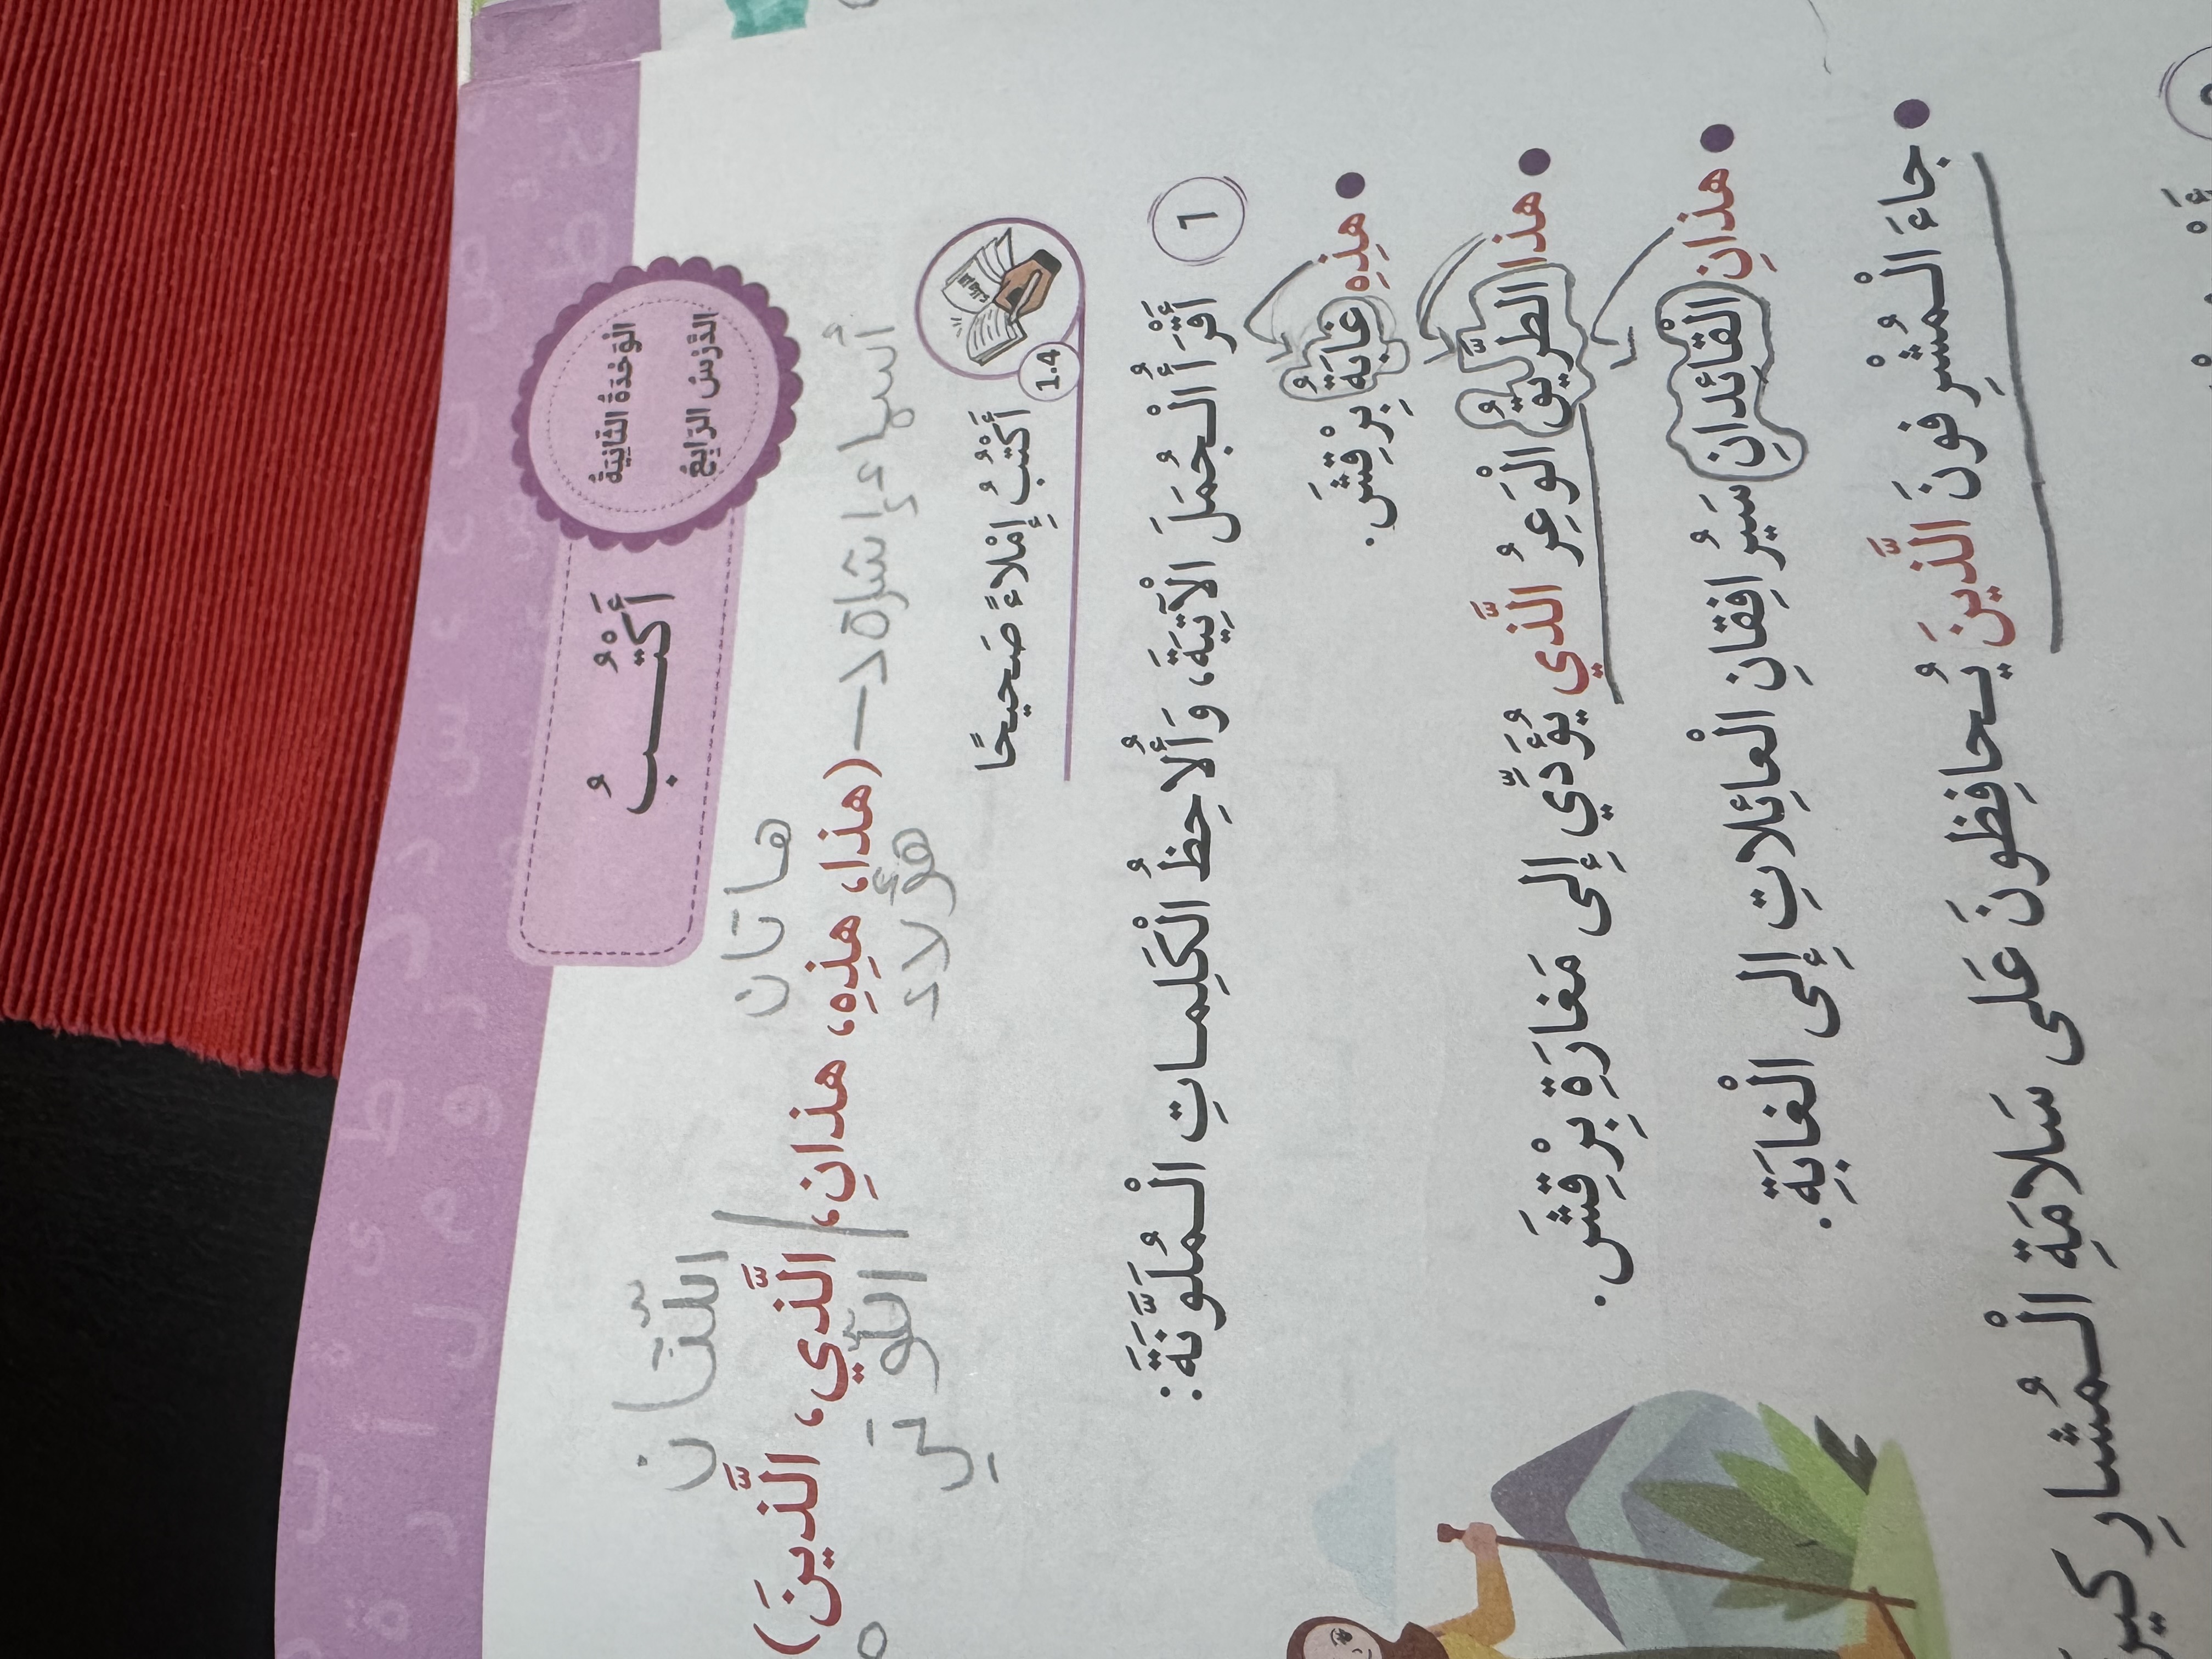 الوَحْدَةُ الثّانِيَةُ
الدَّرْسُ الرّابِعُ
أَكْتُبُ
أسماء إشارة
هاتان
اللّتان
(هذا، هذِهِ، هذانِ، الَّذي، الَّذينَ)
هؤلاء
اللّواتي
1.4 أَكْتُبُ إِمْلاءً صَحيحًا
١ أَقْرَأُ الْجُمَلَ الْآتِيَةَ، وَأُلاحِظُ الْكَلِماتِ الْمُلَوَّنَةَ:
● هذِهِ غابَةُ بِرْقِشَ.
● هذا الطَّريقُ الْوَعِرُ الَّذي يُؤَدّي إِلى مَغارَةِ بِرْقِشَ.
● هذانِ الْقائِدانِ سَيُرافِقانِ الْعائِلاتِ إِلى الْغابَةِ.
● جاءَ الْمُشْرِفونَ الَّذينَ يُحافِظونَ عَلى سَلامَةِ الْمُشارِكينَ